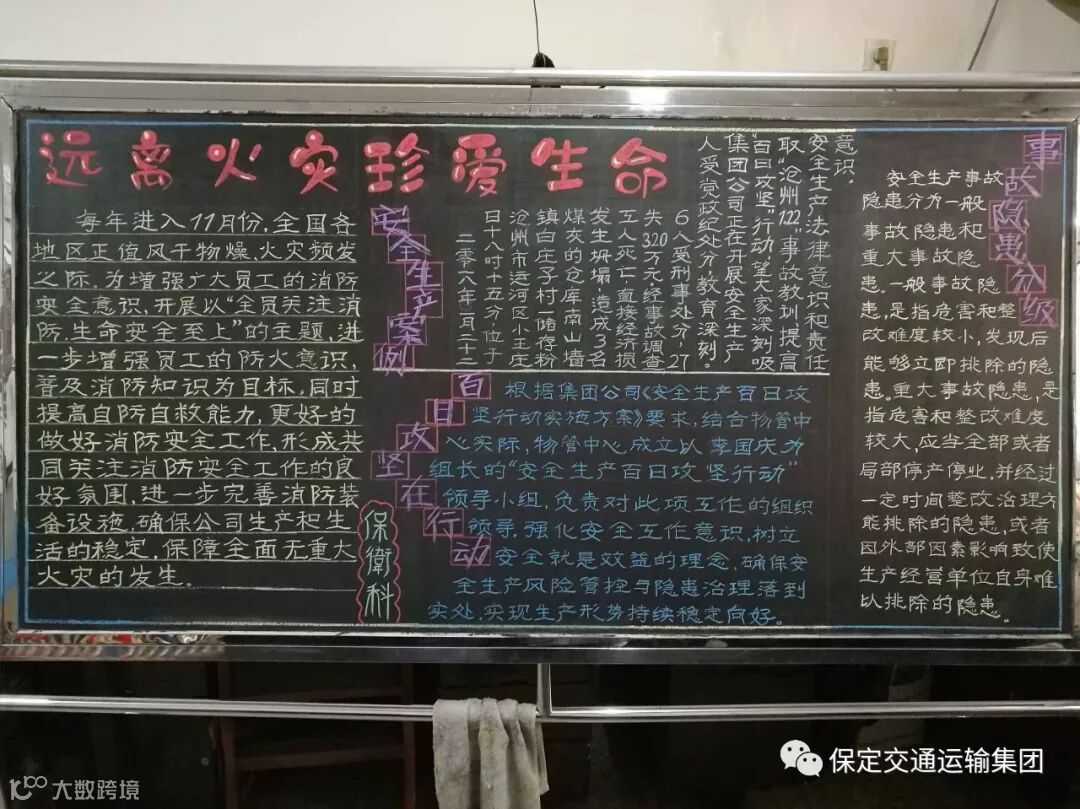 远离火灾珍爱生命
每年进入11月份,全国各
地区正值风干物燥,火灾频发
之际.为增强广大员工的消防
安全意识,开展以“全员关注消
防,生命安全至上”的主题,进
一步增强员工的防火意识,
普及消防知识为目标,同时
提高自防自救能力,更好的
做好消防安全工作,形成共
同关注消防安全工作的良
好氛围,进一步完善消防装
备设施,确保公司生产和生
活的稳定,保障全面无重大
火灾的发生.
保衛科
安全生产案例
二零一八年一月二十二
日十八时十五分,位于
沧州市运河区小王庄
镇白庄子村一储存粉
煤灰的仓库南山墙
发生坍塌,造成3名
工人死亡,直接经济损
失320万元,经事故调查
6人受刑事处分,27
人受党政纪处分教育深刻.
集团公司正在开展安全生产
“百日攻坚”行动,望大家深刻吸
取“沧州1.22”事故教训提高
安全生产法律意识和责任
意识。
百日攻坚在行动
根据集团公司《安全生产百日攻
坚行动实施方案》要求,结合物管中
心实际,物管中心成立以李国庆为
组长的“安全生产百日攻坚行动”
领导小组,负责对此项工作的组织
领导.强化安全工作意识,树立
安全就是效益的理念,确保安
全生产风险管控与隐患治理落到
实处,实现生产形势持续稳定向好。
事故隐患分级
安全生产事故
隐患分为一般
事故隐患和
重大事故隐
患.一般事故隐
患,是指危害和整
改难度较小,发现后
能够立即排除的隐
患.重大事故隐患,是
指危害和整改难度
较大,应当全部或者
局部停产停业,并经过
一定时间整改治理方
能排除的隐患,或者
因外部因素影响致使
生产经营单位自身难
以排除的隐患。
保定交通运输集团
大数跨境